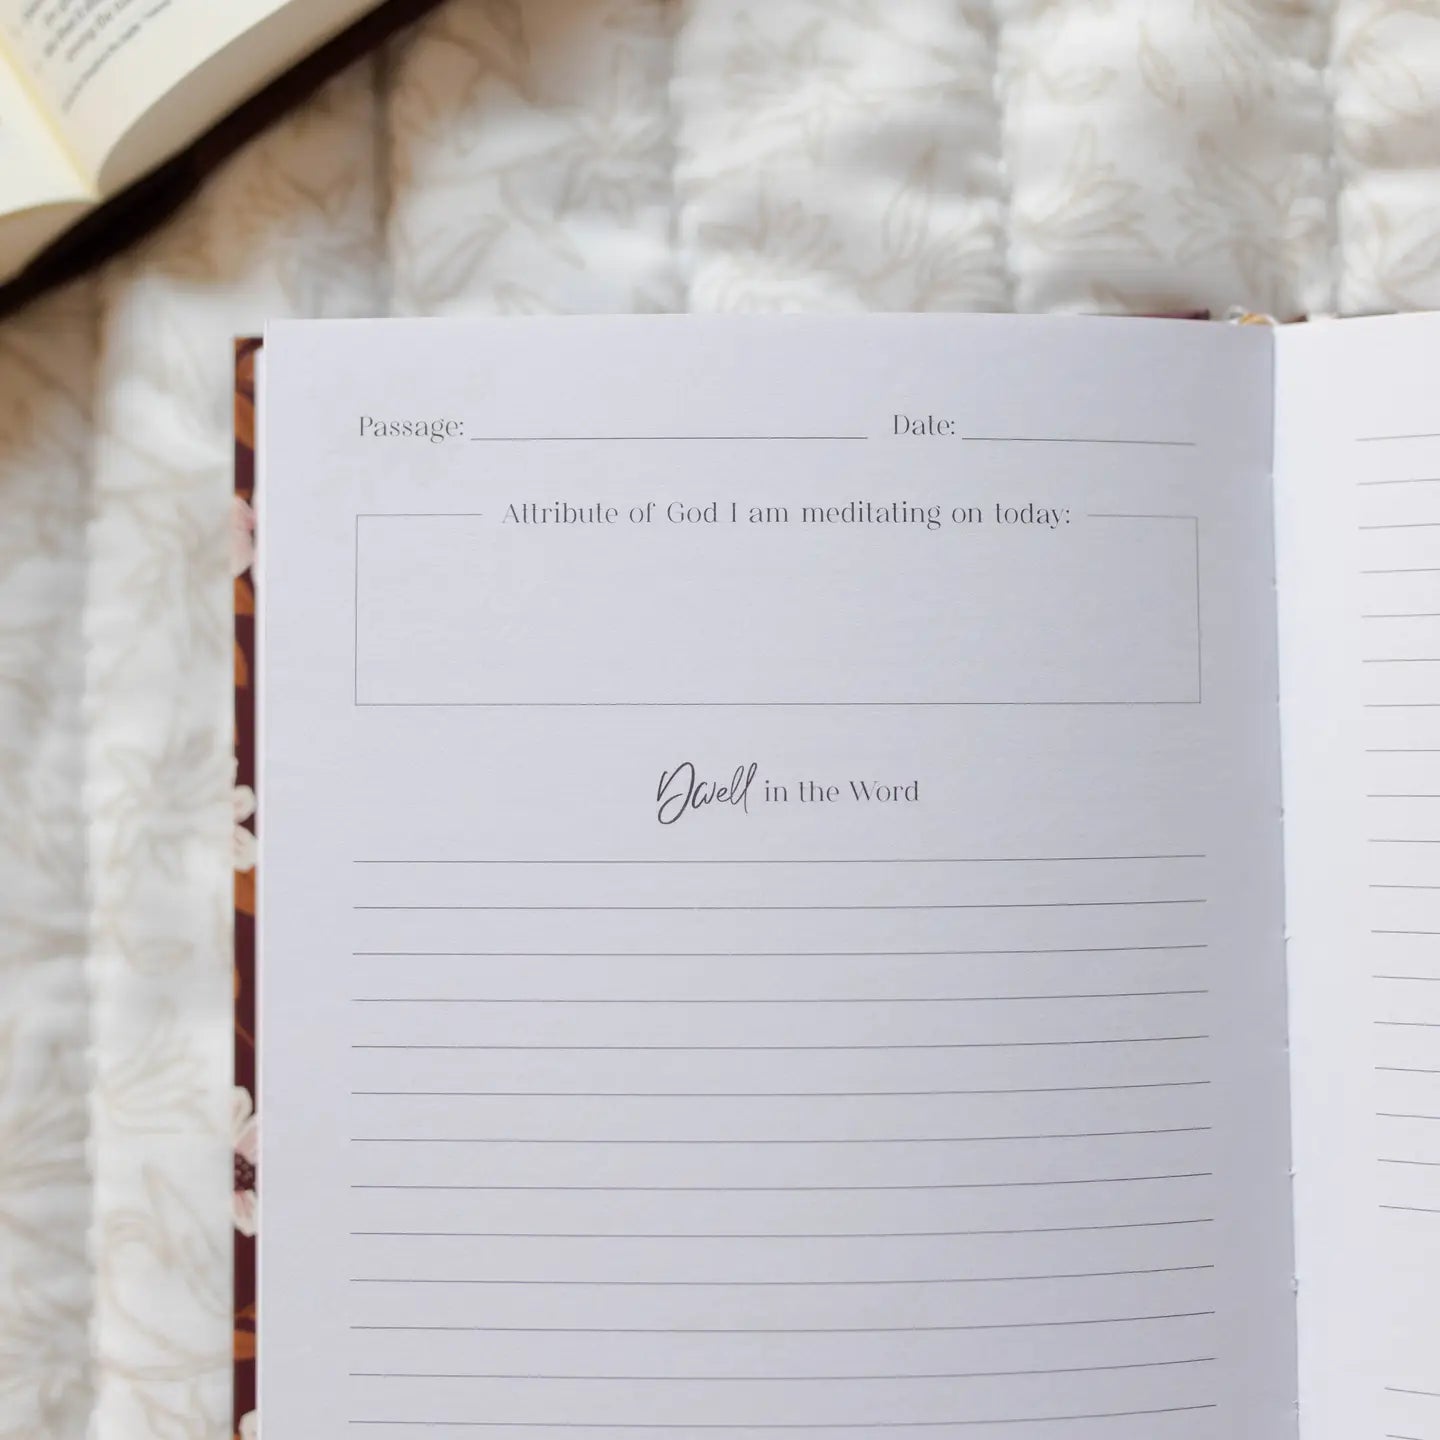 Passage: Date:
Attribute of God I am meditating on today:
Dwell in the Word